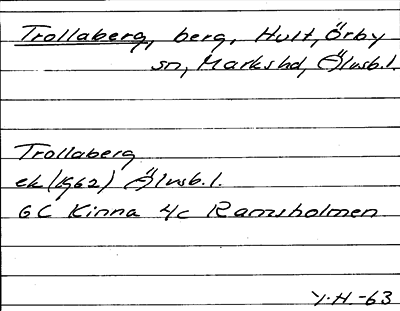 Trollaberg, berg, Hult, Örby
sn, Markshd, Älvsb.l.
Trollaberg
ek (1962) Älvsb.l.
6C Kinna 4c Ramsholmen
Y.H.-63